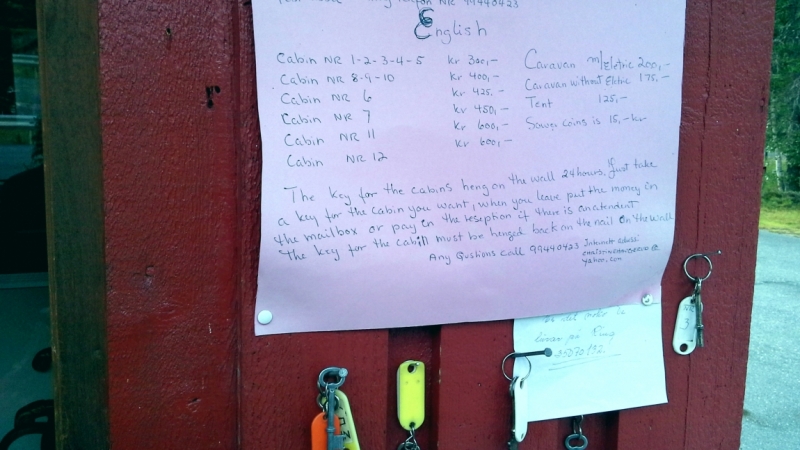 NR 99440423
English
Cabin NR 1-2-3-4-5 kr 300,-
Cabin NR 8-9-10 kr 400,-
Cabin NR 6 kr 425,-
Cabin NR 7 kr 450,-
Cabin NR 11 kr 600,-
Cabin NR 12 kr 600,-
Caravan m/Eletric 200,-
Caravan without Eletric 175,-
Tent 125,-
coins is 15,- kr
The key for the cabins heng on the wall 24 hours. Just take
a key for the cabin you want, when you leave put the money in
the mailbox or pay in the resception if there is an atendent.
The key for the cabin must be henged back on the nail on the wall
Any Qustions call 99440423
Internett adress:
yahoo.com